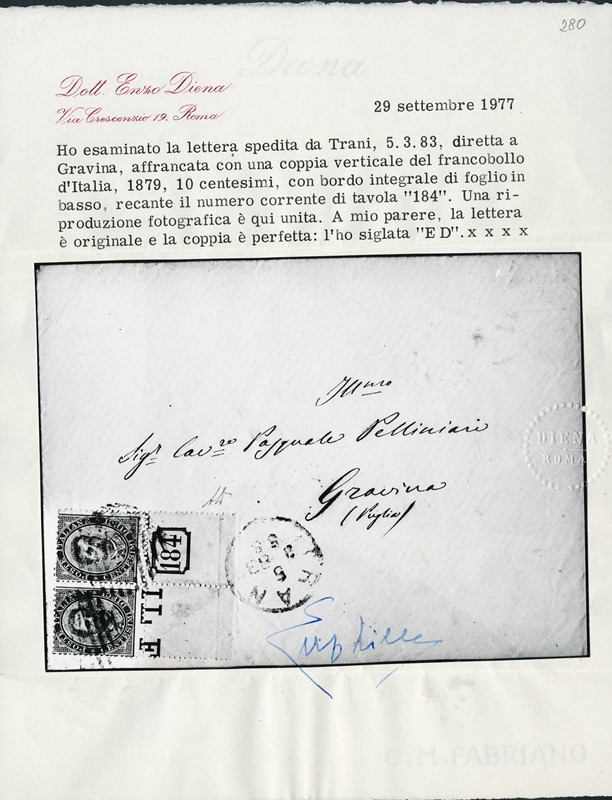 280
Diena
Dott. Enzo Diena
Via Crescenzio 19, Roma
29 settembre 1977
Ho esaminato la lettera spedita da Trani, 5.3.83, diretta a
Gravina, affrancata con una coppia verticale del francobollo
d'Italia, 1879, 10 centesimi, con bordo integrale di foglio in
basso, recante il numero corrente di tavola "184". Una ri-
produzione fotografica è qui unita. A mio parere, la lettera
è originale e la coppia è perfetta: l'ho siglata "E D". x x x x
Illmo
Sigr Cavre Pasquale Pelliciari
Gravina
(Puglia)
DIENA
ROMA
184
5
C.M.FABRIANO